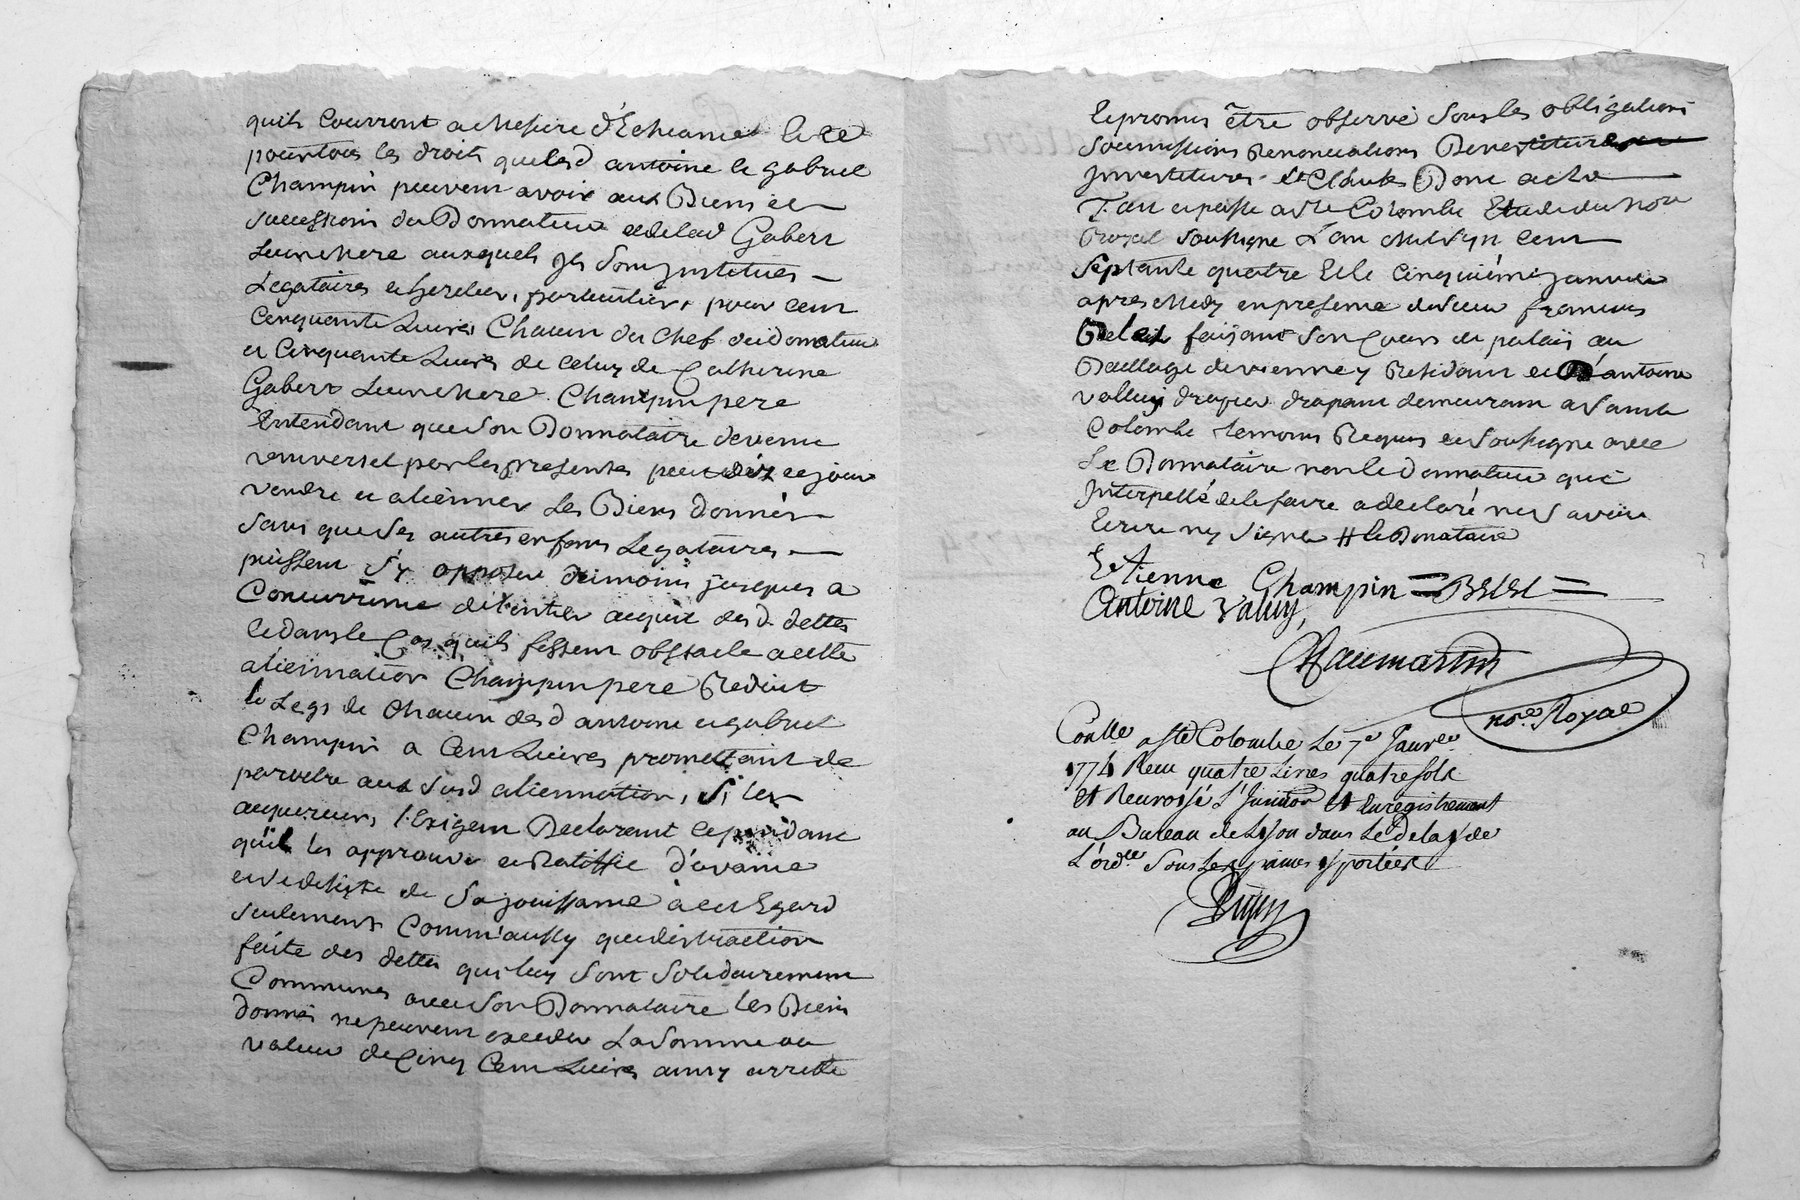 quils courront a mesure d'Echeance le ce
pour tous les droits que lesd antoine et gabriel
Champin peuvent avoir aux Biens et
successions du Donnateur et de lad Gabert
Leur Mere auxquels jls sont jnstitués
Legataires et heretiers, particuliers, pour cent
cinquante Livres Chacun du Chef dud donnateur
et cinquante Livres de celuy de Catherine
Gabert Leur Mere. Champin pere
Entendant que son Donnataire devenu
universel par les presentes peut dez ce jour
vendre et alienner les Biens donnés
sans que ses autres enfans Legataires
puissent s'y opposer dumoins jusques a
Concurrence de l'entier acquit desd. dettes
et dans le Cas qu'ils fissent obstacle a cette
aliennation Champin pere Reduit
le Legs de chacun desd antoine et gabriel
Champin a Cent Livres promettant de
paroitre aux susd aliennation, si les
acquereurs l'Exigent Declarant cependant
quil les approuve et Ratiffie d'avance
et se desiste de sa jouissance à cet Egard
seulement Comm'aussy que distraction
faite des dettes qui luy sont solidairement
Communes avec son Donnataire les Biens
donnés ne peuvent exceder La somme ou
valeur de Cinq Cent Livres ainsy arretté
et promis être observé sous les obligations
soumissions Renonciations Devestitures
jnvestitures et Clauses Dont acte
fait et passé a Ste Colombe Etude du Nore
Royal soussigné L'an mil sept cent
septante quatre et le cinquiéme janvier
apres Midy en presence de sieur francois
Belet faisant son Cours de palais au
Baillage de vienne y Residant et Sr antoine
valluy drapier drapant demeurant a sainte
Colombe temoins Requis et soussignés avec
Le Donnataire non le donnateur qui
jnterpellé de le faire a declaré ne savoir
Ecrire ny signer # le Donataire
Etienne Champin = BELET =
Antoine Valuy,
noe Royal
Conlle a Ste Colombe Le 7e Janver
1774 Recu quatre Livres quatre sols
et Renvoyé L'Jnsinuon et Enregistrement
au Bureau de Lyon dans Le Delay de
L'orde sous les peines y portées